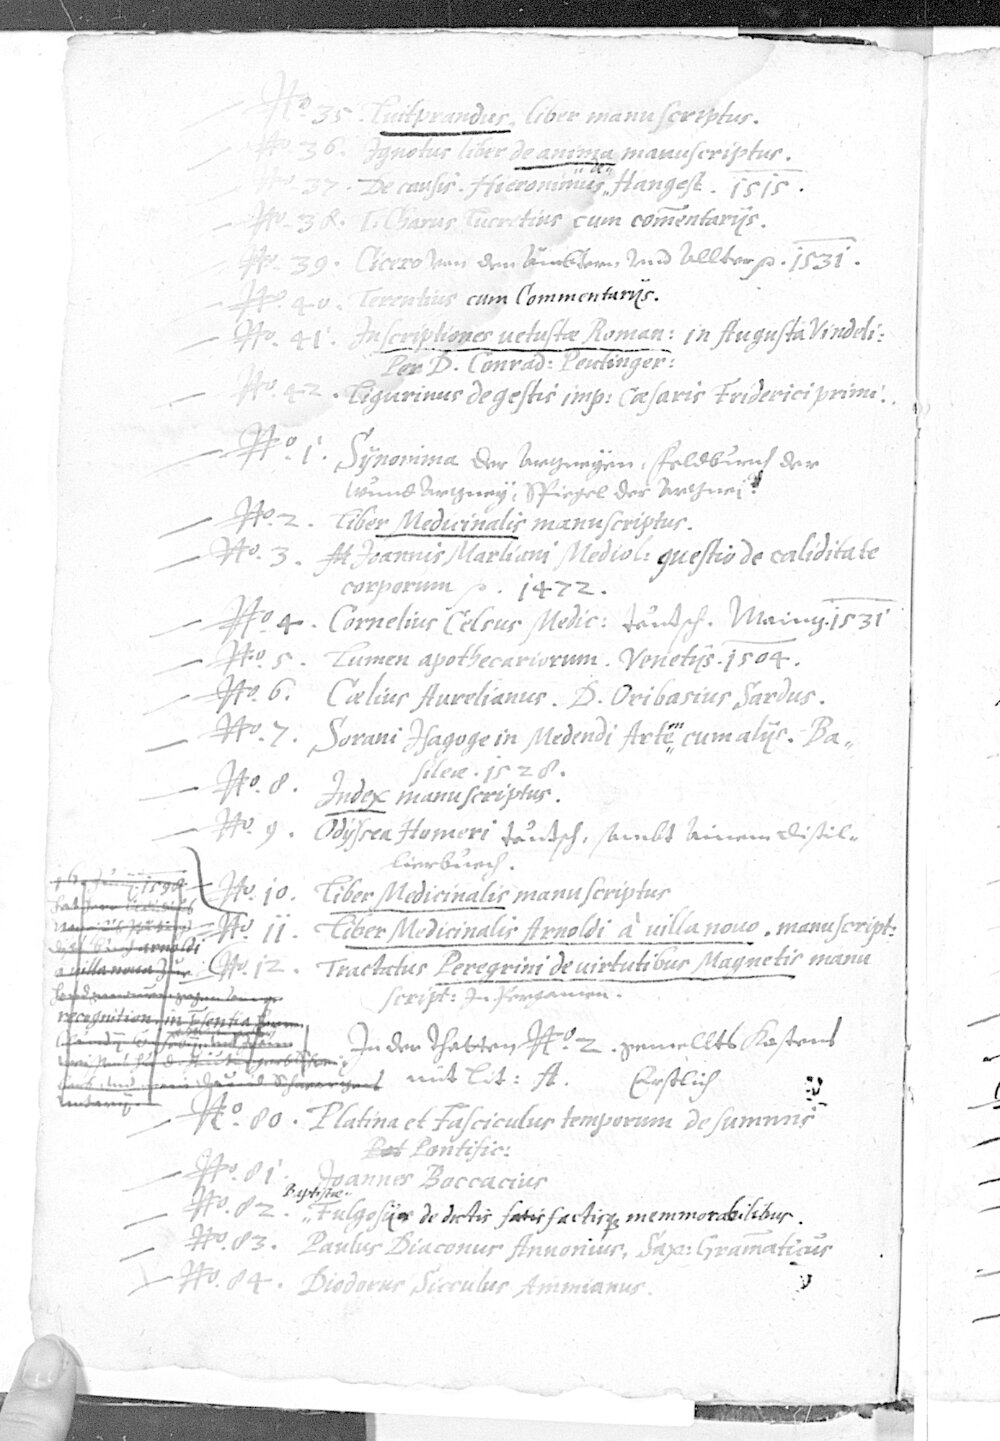 No. 35. Luitprandus, liber manuscriptus.
No. 36. Ignotus liber de anima manuscriptus.
No. 37. De causis. Hieronimus de Hangest. 1515.
No. 38. T. Charus Lucretius cum com̄entarijs.
No. 39. Cicero von den Ämbtern und Allter p. 1531.
No. 40. Terentius cum Commentarijs.
No. 41. Inscriptiones uetustæ Roman: in Augusta Vindeli:
Per D. Conrad: Peutinger:
No. 42. Ligurinus de gestis imp: Cæsaris Friderici primi.
No. 1. Sÿnonima der Artzneÿen, Feldbuech der
Wund Artzneÿ, Spiegel der Artznei.
No. 2. Liber Medicinalis manuscriptus.
No. 3. Joannis Marliani Mediol: questio de caliditate
corporum p. 1472.
No. 4. Cornelius Celsus Medic: teutsch. Mainz. 1531
No. 5. Lumen apothecariorum. Venetijs. 1504.
No. 6. Cælius Aurelianus. D. Oribasius Sardus.
No. 7. Sorani Isagoge in Medendi Artem cum alijs. Ba„
sileæ. 1528.
No. 8. Index manuscriptus.
No. 9. Odÿssea Homeri teutsch, sambt Ainem distil„
lierbuech.
No. 10. Liber Medicinalis manuscriptus
No. 11. Liber Medicinalis Arnoldi à uilla nouo. manuscript:
No. 12. Tractatus Peregrini de uirtutibus Magnetis manu
script: In Pergamen.
1598
arnoldi
a uillanoua
recognition
In der Thatten No. 2. gemellts Kastens
mit Lit: A. Erstlich
No. 80. Platina et Fasciculus temporum de summis
Pontific:
No. 81. Joannes Boccacius
Baptistæ
No. 82. Fulgosij de dictis factisq; memmorabilibus.
No. 83. Paulus Diaconus Annonius, Sax: Gram̄aticus
No. 84. Diodorus Sicculus Ammianus.